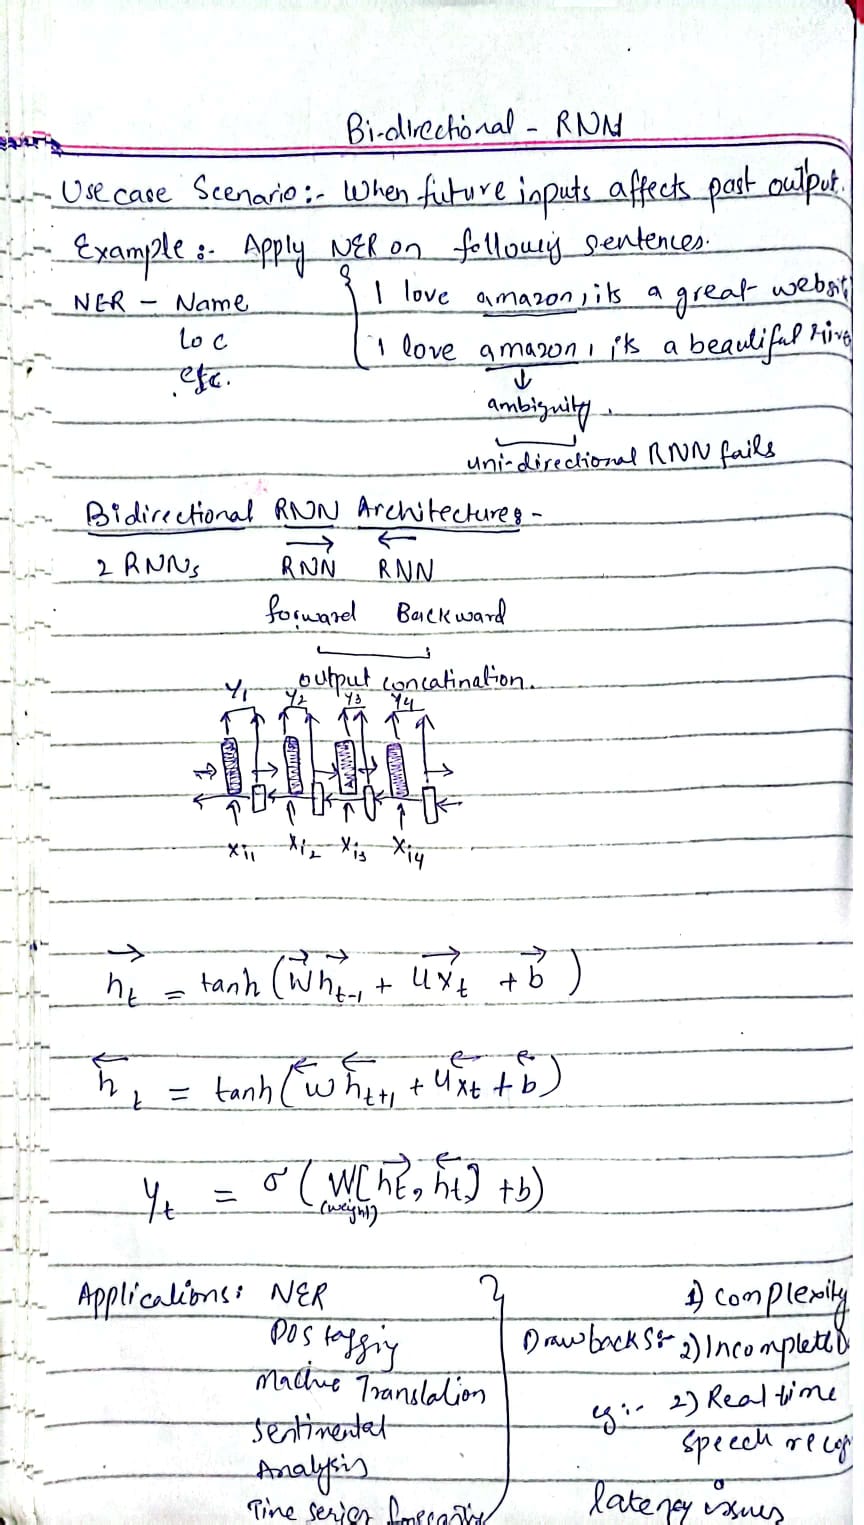 Bi-directional - RNN
Use case Scenario:- When future inputs affects past output.
Example :- Apply NER on following sentences.
NER - Name
Loc
etc.
{ I love amazon, its a great websit
I love amazon, its a beautiful rive
↓
ambiguity.
uni-directional RNN fails
Bidirectional RNN Architecture :-
2 RNNs → RNN ← RNN
forward Backward
output concatination.
Y1 Y2 Y3 Y4
Xi1 Xi2 Xi3 Xi4
→h_t = tanh (→w →h_t-1 + →ux_t + →b)
←h_t = tanh (←w ←h_t+1 + ←ux_t + ←b)
y_t = σ (W[→h_t, ←h_t] + b)
(weight)
Applications: NER
POS taggig
Machine Translation
Sentimental
Analysis
Time series forecasting
Drawbacks :- 1) complexity
2) Incomplete
eg:- 2) Real time
speech recog
latency issues